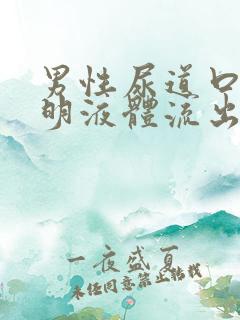 男性尿道口
明液體流出
一夜盛夏
未經同意禁止轉載